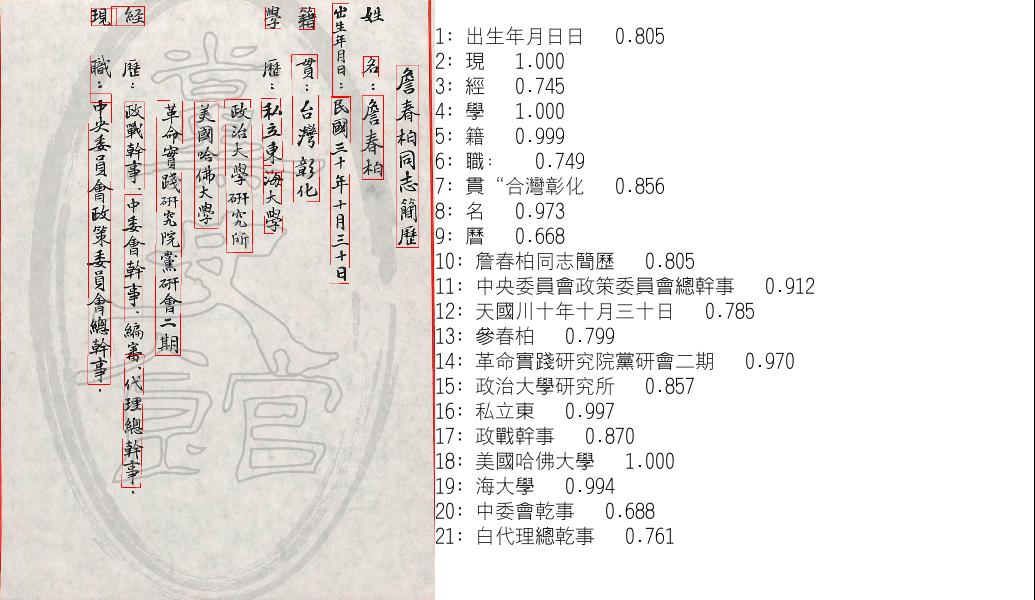 詹春柏同志簡歷
姓 名：詹春柏
出生年月日：民國三十年十月三十日
籍 貫：台灣彰化
學 歷：私立東海大學
政治大學研究所
美國哈佛大學
革命實踐研究院黨研會二期
經 歷：政戰幹事、中委會幹事、編審、代理總幹事．
現 職：中央委員會政策委員會總幹事．
1: 出生年月日日 0.805
2: 現 1.000
3: 經 0.745
4: 學 1.000
5: 籍 0.999
6: 職： 0.749
7: 貫“台灣彰化 0.856
8: 名 0.973
9: 曆 0.668
10: 詹春柏同志簡歷 0.805
11: 中央委員會政策委員會總幹事 0.912
12: 天國川十年十月三十日 0.785
13: 參春柏 0.799
14: 革命實踐研究院黨研會二期 0.970
15: 政治大學研究所 0.857
16: 私立東 0.997
17: 政戰幹事 0.870
18: 美國哈佛大學 1.000
19: 海大學 0.994
20: 中委會乾事 0.688
21: 白代理總乾事 0.761